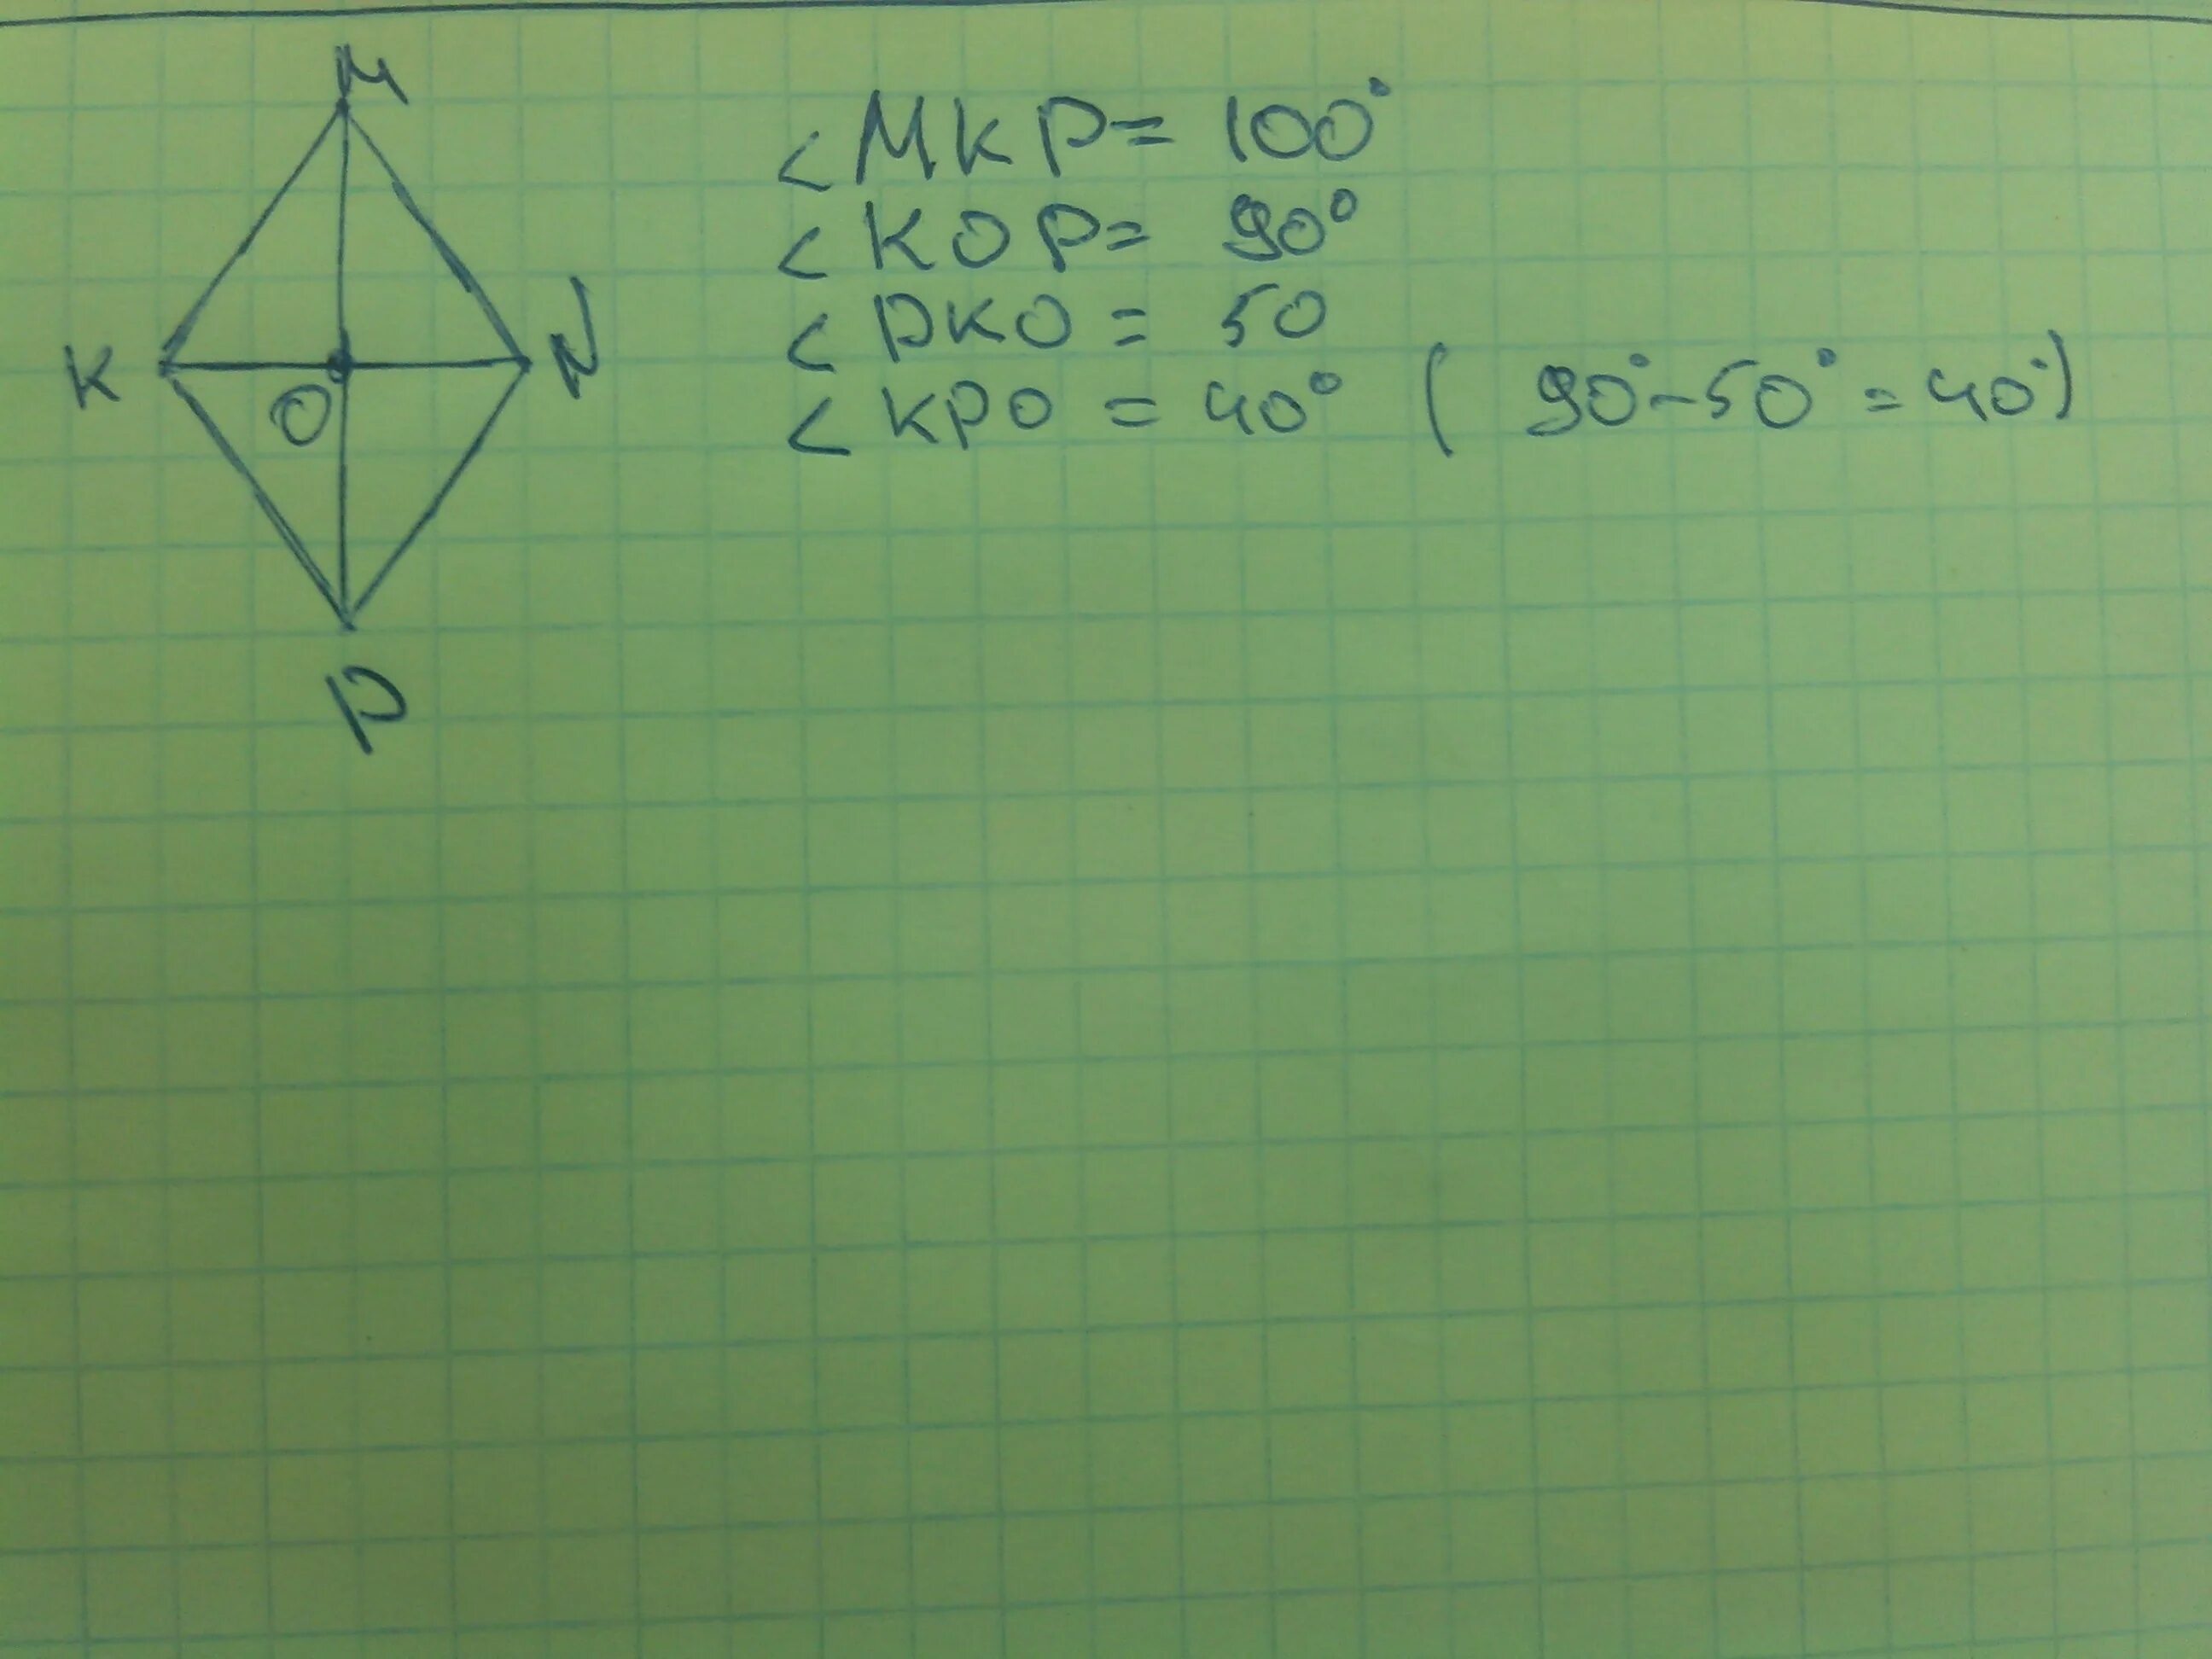 M
K
O
N
P
< MKP = 100°
< KOP = 90°
< PKO = 50
< KPO = 40° ( 90° - 50° = 40°)